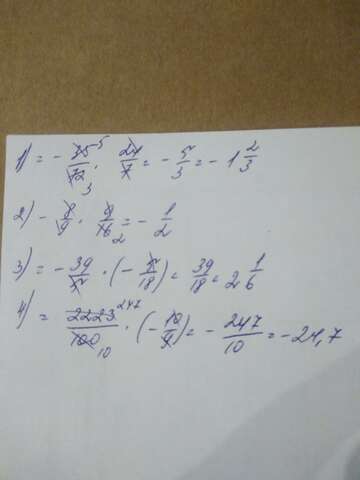 1) = - 35 5/72 3 · 24/7 = - 5/3 = - 1 2/3
2) - 8/9 · 9/16 2 = - 1/2
3) = - 39/5 · (- 5/18) = 39/18 = 2 1/6
4) = 2223 247/100 10 · (- 10/9) = - 247/10 = - 24,7